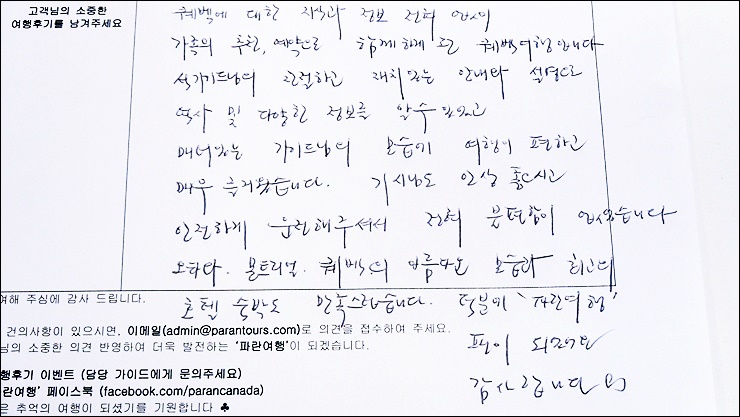 고객님의 소중한
여행후기를 남겨주세요
퀘벡에 대한 지식과 정보 전혀 없이
가족의 추천, 예약으로 함께하게 된 퀘벡여행입니다
석가이드님의 친절하고 재치있는 안내와 설명으로
역사 및 다양한 정보를 알수 있었고
매너있는 가이드님의 모습에 여행이 편하고
매우 즐거웠습니다. 기사님도 인상 좋으시고
안전하게 운전해주셔서 전혀 불편함이 없었습니다
오타와. 몬트리얼. 퀘벡의 아름다운 모습과 최고의
호텔 숙박도 만족스럽습니다. 덕분에 '파란여행'
팬이 되었고
감사합니다
여해 주심에 감사 드립니다.
건의사항이 있으시면, 이메일(admin@parantours.com)로 의견을 접수하여 주세요.
님의 소중한 의견 반영하여 더욱 발전하는 '파란여행'이 되겠습니다.
행후기 이벤트 (담당 가이드에게 문의주세요)
란여행' 페이스북 (facebook.com/parancanada)
은 추억의 여행이 되셨기를 기원합니다 ♣